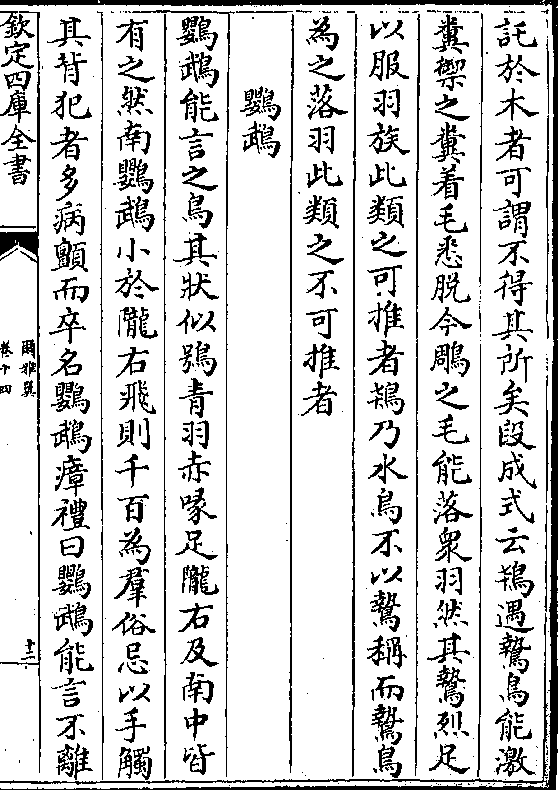 託於木者可謂不得其所矣段成式云鵁遇鷙鳥能激
糞禦之糞着毛悉脱今鵰之毛能落衆羽然其鷙烈足
以服羽族此類之可推者鵁乃水鳥不以鷙稱而鷙鳥
為之落羽此類之不可推者
鸚䳇
鸚䳇能言之鳥其狀似鴞青羽赤喙足隴右及南中皆
有之然南鸚䳇小於隴右飛則千百為羣俗忌以手觸
其背犯者多病顫而卒名鸚䳇瘴禮曰鸚䳇能言不離
欽定四庫全書
爾雅翼
卷十四
十三